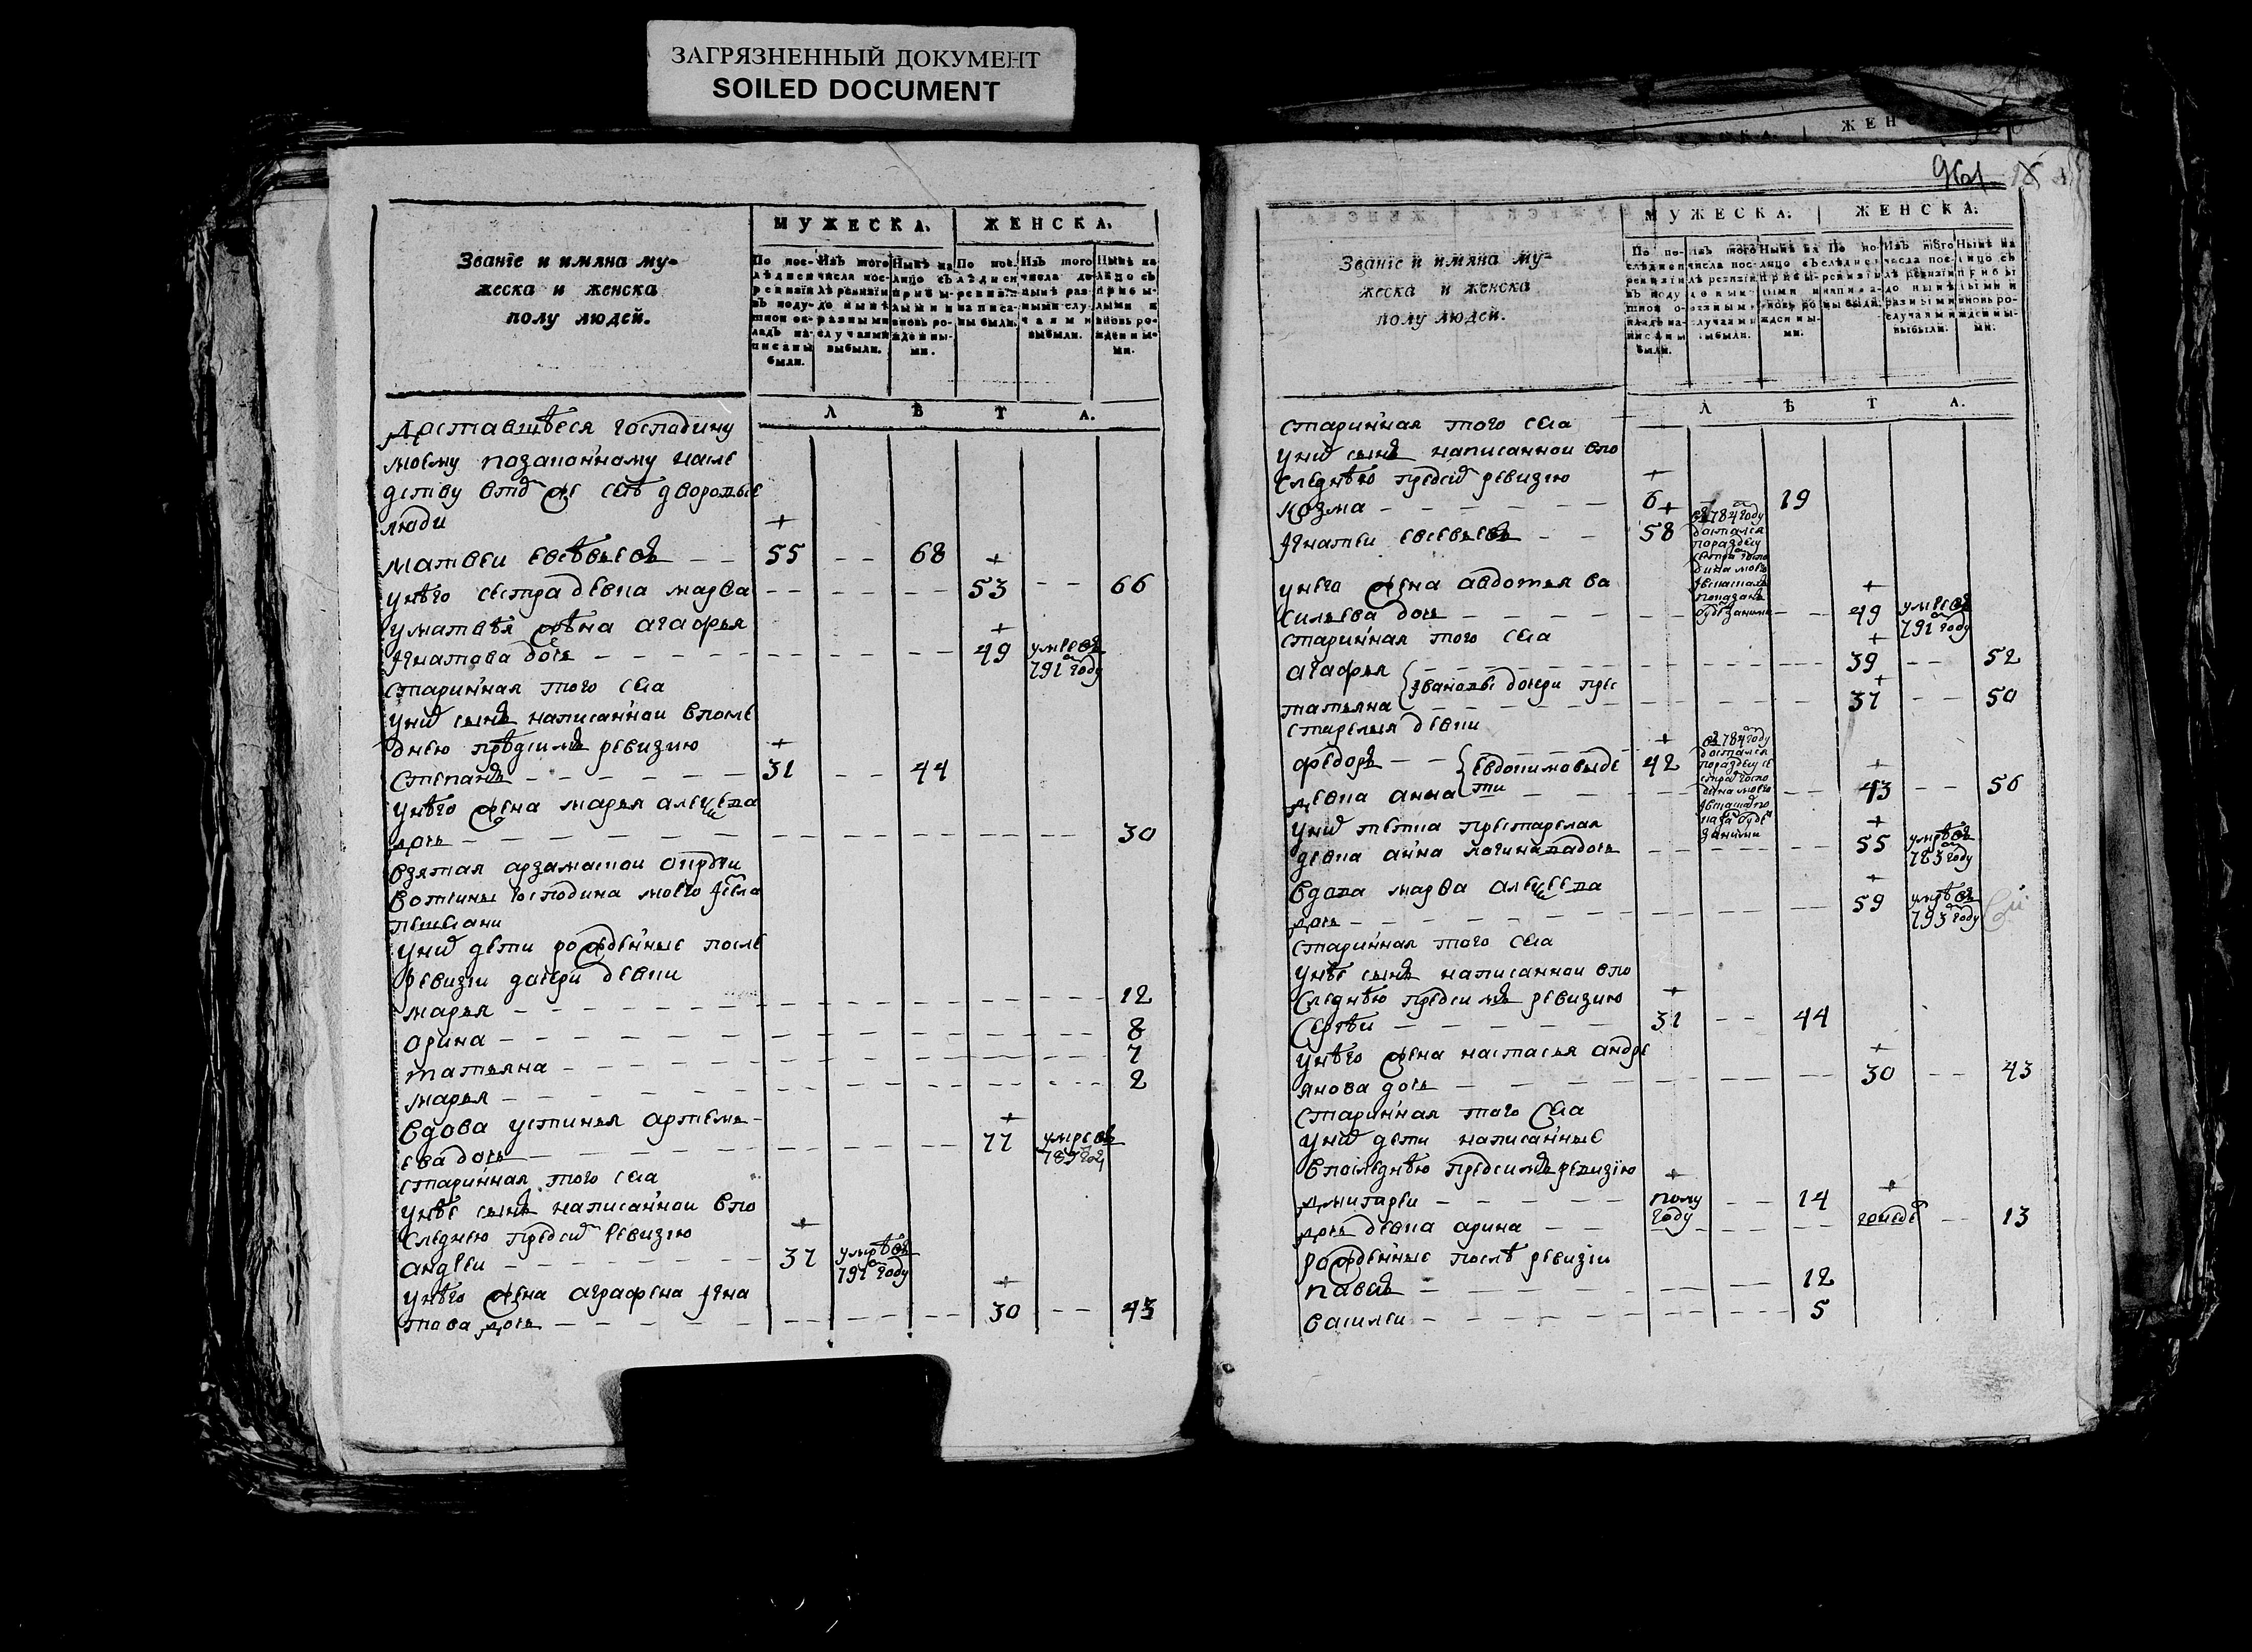 ЗАГРЯЗНЕННЫЙ ДОКУМЕНТ
SOILED DOCUMENT
Званїе и имяна му-
жеска и женска
полу людей.
МУЖЕСКА.
ЖЕНСКА.
По пос-
лѣдней
ревизїи
въ поду-
шной ок-
ладъ на-
писаны
были.
Изъ того
числа пос-
лѣ ревизїи
до нынѣ
разными
случаями
выбыли.
Нынѣ на
лицо съ
прибы-
лыми и
вновь ро-
жденны-
ми.
По пос.
лѣдней
ревизїи
написа-
ны были.
Изъ того
числа до
нынѣ раз-
ными слу-
чаями
выбыли.
Нынѣ на
лицо съ
прибы-
лыми и
вновь ро-
жденны-
ми.
ЛѢТА.
Доставшѣеся господину
моему позаконному насле
дству втомъ же селѣ дворовые
люди
матвеи евсѣвьевъ 55 68
унѣго сестра девка марѳа 53 66
уматвѣя жена агафья
Игнатова дочь 49 умре въ 791 году
старинная того села
унихъ сынъ написаннои впосле
днею предсимъ ревизию
степанъ 31 44
унѣго жена марья алексеева
дочь 30
взятая арзамаскои округи
вотчины господина моего села
унихъ дети рожденные после
ревизїи дочери девки
марья 12
орина 8
татьяна 7
марья 2
вдова устинья артемь-
ева дочь 77 умре въ 789 году
старинная того села
унѣе сынъ написаннои впо
следнею предсимъ ревизию
андреи 37 умрѣ въ 791 году
унѣго жена аграфена Игна
това дочь 30 43
961
Званїе и имяна му-
жеска и женска
полу людей.
МУЖЕСКА.
ЖЕНСКА.
По по-
слѣдней
ревизїи
въ поду
шной о-
кладъ на-
писаны
были.
Изъ того
числа пос
лѣ ревизїи
до нын.
разными
случаями
выбыли.
Нынѣ на
лицо съ
прибы-
лыми и
вновь ро-
жденны-
ми.
По по-
слѣдней
ревизїи
написа-
ны были.
Изъ того
числа пос-
лѣ ревизїи
до нынѣ
разными
случаями
выбыли.
Нынѣ на
лицо съ
прибы
лыми и
вновь ро-
жденны-
ми.
ЛѢТА.
старинная того села
унихъ сынъ написаннои впо
следнѣю предсимъ ревизию
козма 6 19
Игнатеи евсевьевъ 58 въ 784 году достался поразделу сестре господина моего
унего жена авдотья ва
сильева дочь 49 умре въ 791 году
старинная того села
агафья 39 52
Ивановы дочери прес
татьяна 37 50
старелыя девки
федоръ 42 въ 784 году достался поразделу сестре господина моего
евдокимовы де
девка анна 43 56
ти
унихъ тетка престарелая
девка анна логинова дочь 55 умрѣ въ 783 году
вдова марѳа алексеева
дочь 59 умрѣ въ 793 году
старинная того села
унѣе сынъ написаннои впо
следнѣю предсимъ ревизию
сергѣи 31 44
унѣго жена настасья андре
янова дочь 30 43
старинная того села
унихъ дети написанные
впоследнѣю предсимъ ревизїю
дмитреи полу году 14
дочь девка орина 13
рожденные послѣ ревизїи
павелъ 12
василеи 5